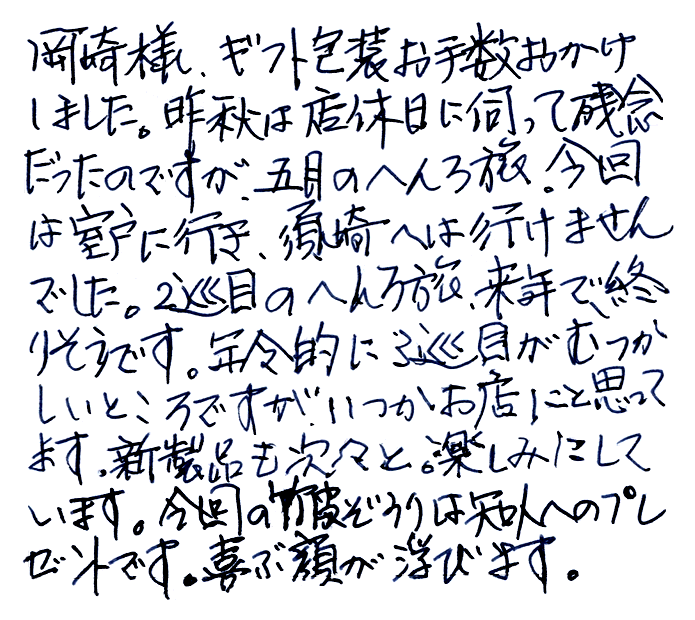 岡崎様、ギフト包装お手数おかけ
しました。昨秋は店休日に伺って残念
だったのですが、五月のへんろ旅。今回
は室戸に行き、須崎へは行けません
でした。2巡目のへんろ旅、来年で終
りそうです。年令的に3巡目がむつか
しいところですが、いつかお店にと思って
ます。新製品も次々と。楽しみにして
います。今回の竹皮ぞうりは知人へのプレ
ゼントです。喜ぶ顔が浮びます。